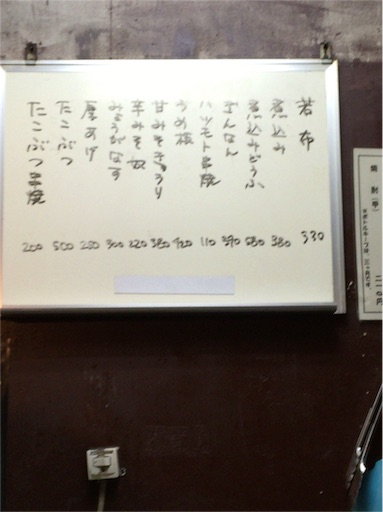 若布 330
煮込み 380
煮込みどうふ 580
ぎんなん 390
ハツモト串焼 110
うめ板 420
甘みそきゅうり 380
辛みそ奴 220
みょうがなす 300
厚あげ 280
たこぶつ 500
たこぶつ串焼 200
焼酎
二一〇円